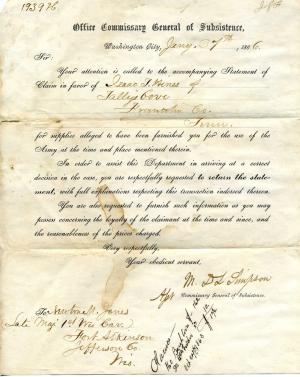 193976
Office Commissary General of Subsistence,
Washington City, Jany 27th, 1866.
Sir:
Your attention is called to the accompanying Statement of
Claim in favor of Isaac T. Hines of
Tellys Cove
Franklin Co.
Tenn.
for supplies alleged to have been furnished you for the use of the
Army at the time and place mentioned therein.
In order to assist this Department in arriving at a correct
decision in the case, you are respectfully requested to return the state-
ment, with full explanations respecting this transaction indorsed thereon.
You are also requested to furnish such information as you may
possess concerning the loyalty of the claimant at the time and since, and
the reasonableness of the prices charged.
Very respectfully,
Your obedient servant,
M. D. L. Simpson
Commissary General of Subsistence.
To Newton M. Jones
Late Maj 1st Wis Cav.
Fort Atkinson
Jefferson Co
Wis.